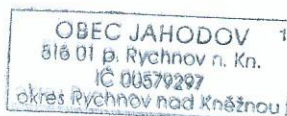 OBEC JAHODOV 1
516 01 p. Rychnov n. Kn.
IČ 00579297
okres Rychnov nad Kněžnou